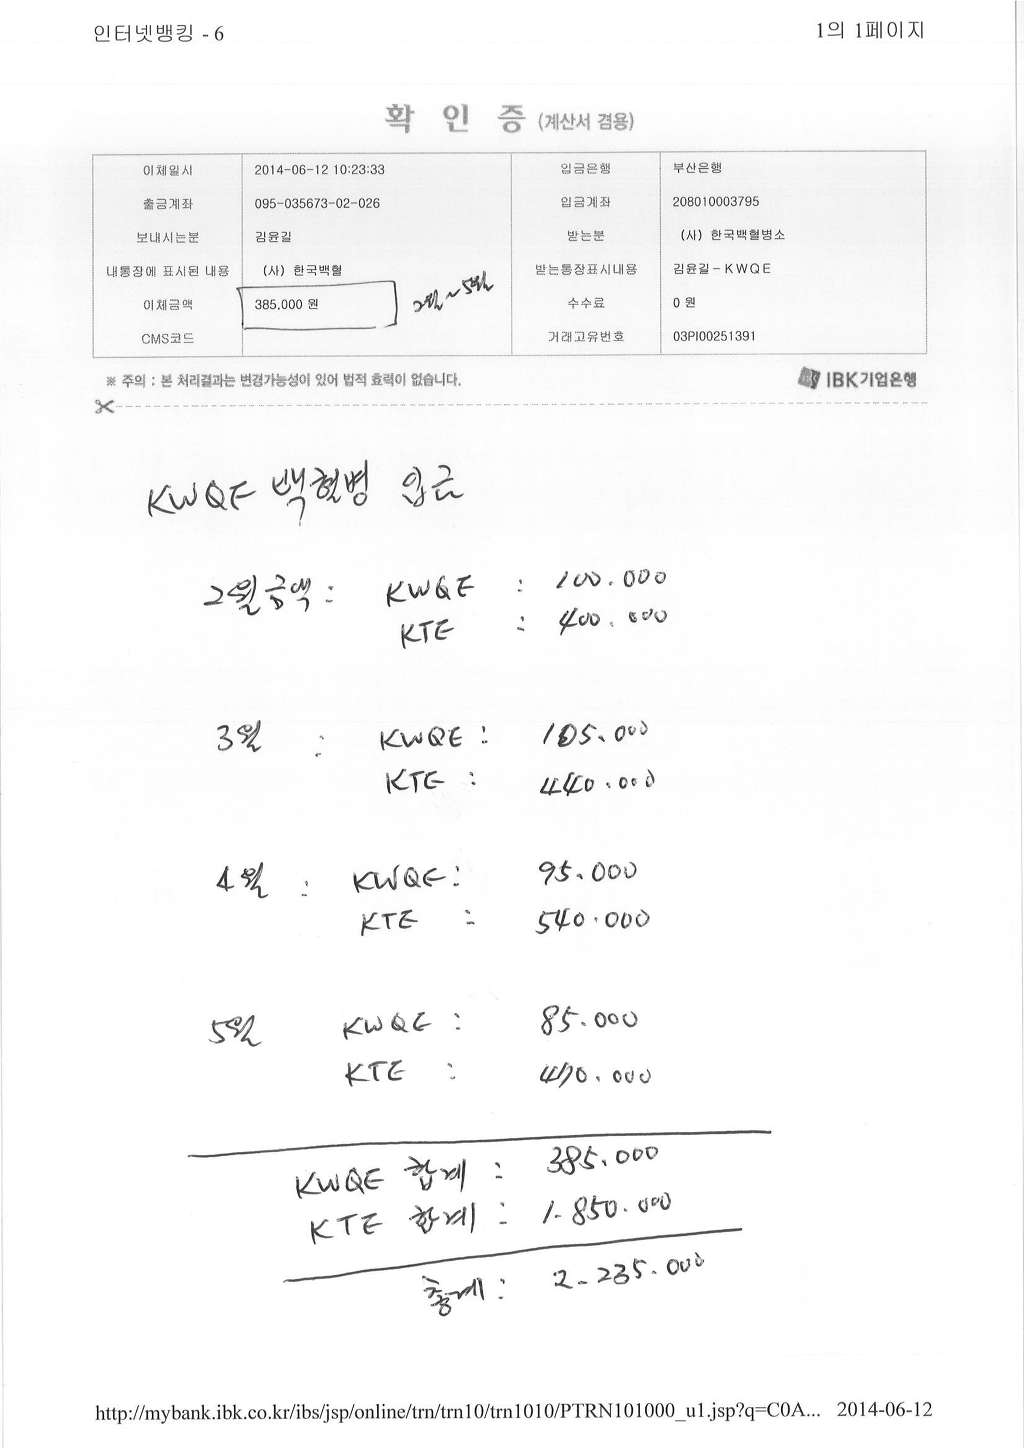 인터넷뱅킹 - 6 1의 1페이지
확 인 증 (계산서 겸용)
이체일시 2014-06-12 10:23:33 입금은행 부산은행
출금계좌 095-035673-02-026 입금계좌 208010003795
보내시는분 김윤길 받는분 (사) 한국백혈병소
내통장에 표시된 내용 (사) 한국백혈 받는통장표시내용 김윤길-KWQE
이체금액 385,000 원 2월~5월 수수료 0 원
CMS코드 거래고유번호 03PI00251391
※ 주의 : 본 처리결과는 변경가능성이 있어 법적 효력이 없습니다. IBK기업은행
KWQE 백혈병 입금
2월금액 : KWQE : 100.000
KTE : 400.000
3월 : KWQE : 105.000
KTE : 440.000
4월 : KWQE : 95.000
KTE : 540.000
5월 KWQE : 85.000
KTE : 470.000
KWQE 합계 : 385.000
KTE 합계 : 1-850.000
총계 : 2-235.000
http://mybank.ibk.co.kr/ibs/jsp/online/trn/trn10/trn1010/PTRN101000_u1.jsp?q=C0A... 2014-06-12